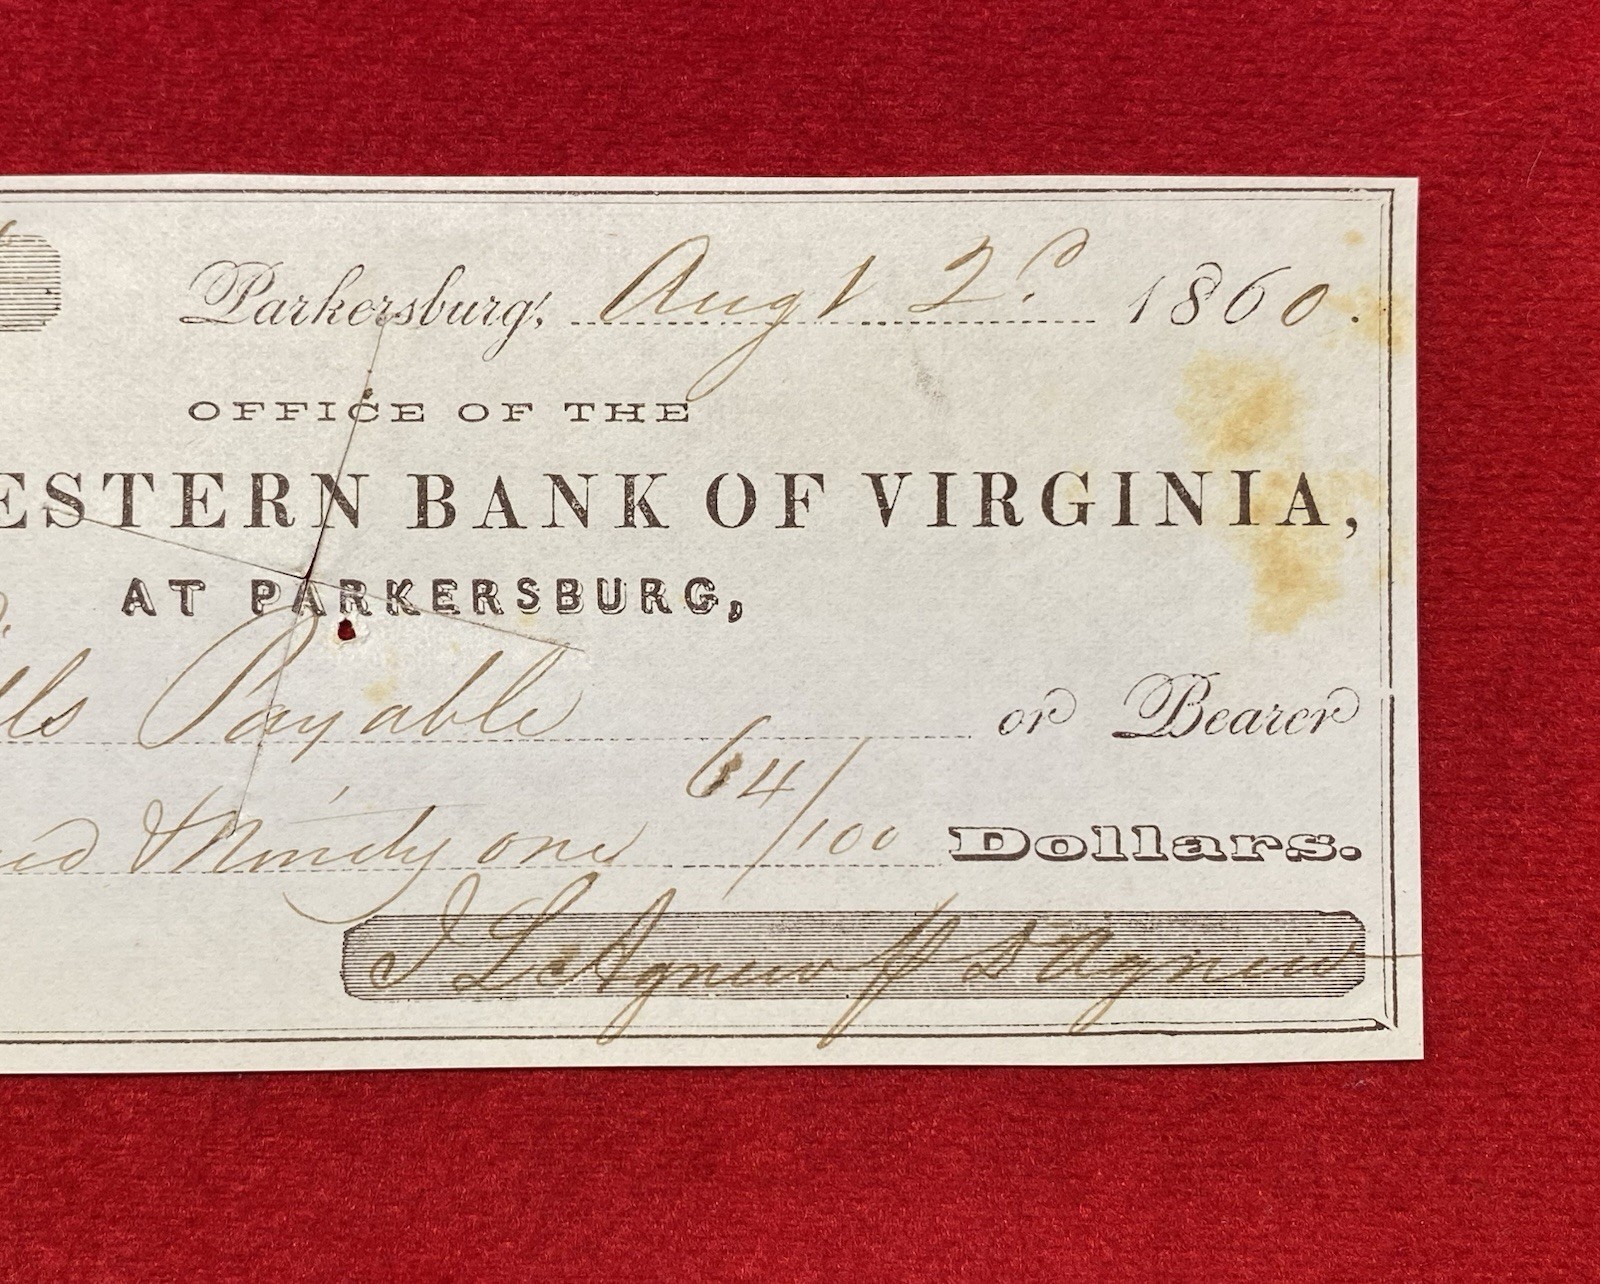 Parkersburg, Augt 2d 1860.
OFFICE OF THE
ESTERN BANK OF VIRGINIA,
AT PARKERSBURG,
lls Payable or Bearer
ed & Ninety one 64/100 Dollars.
Agnew D Agnew